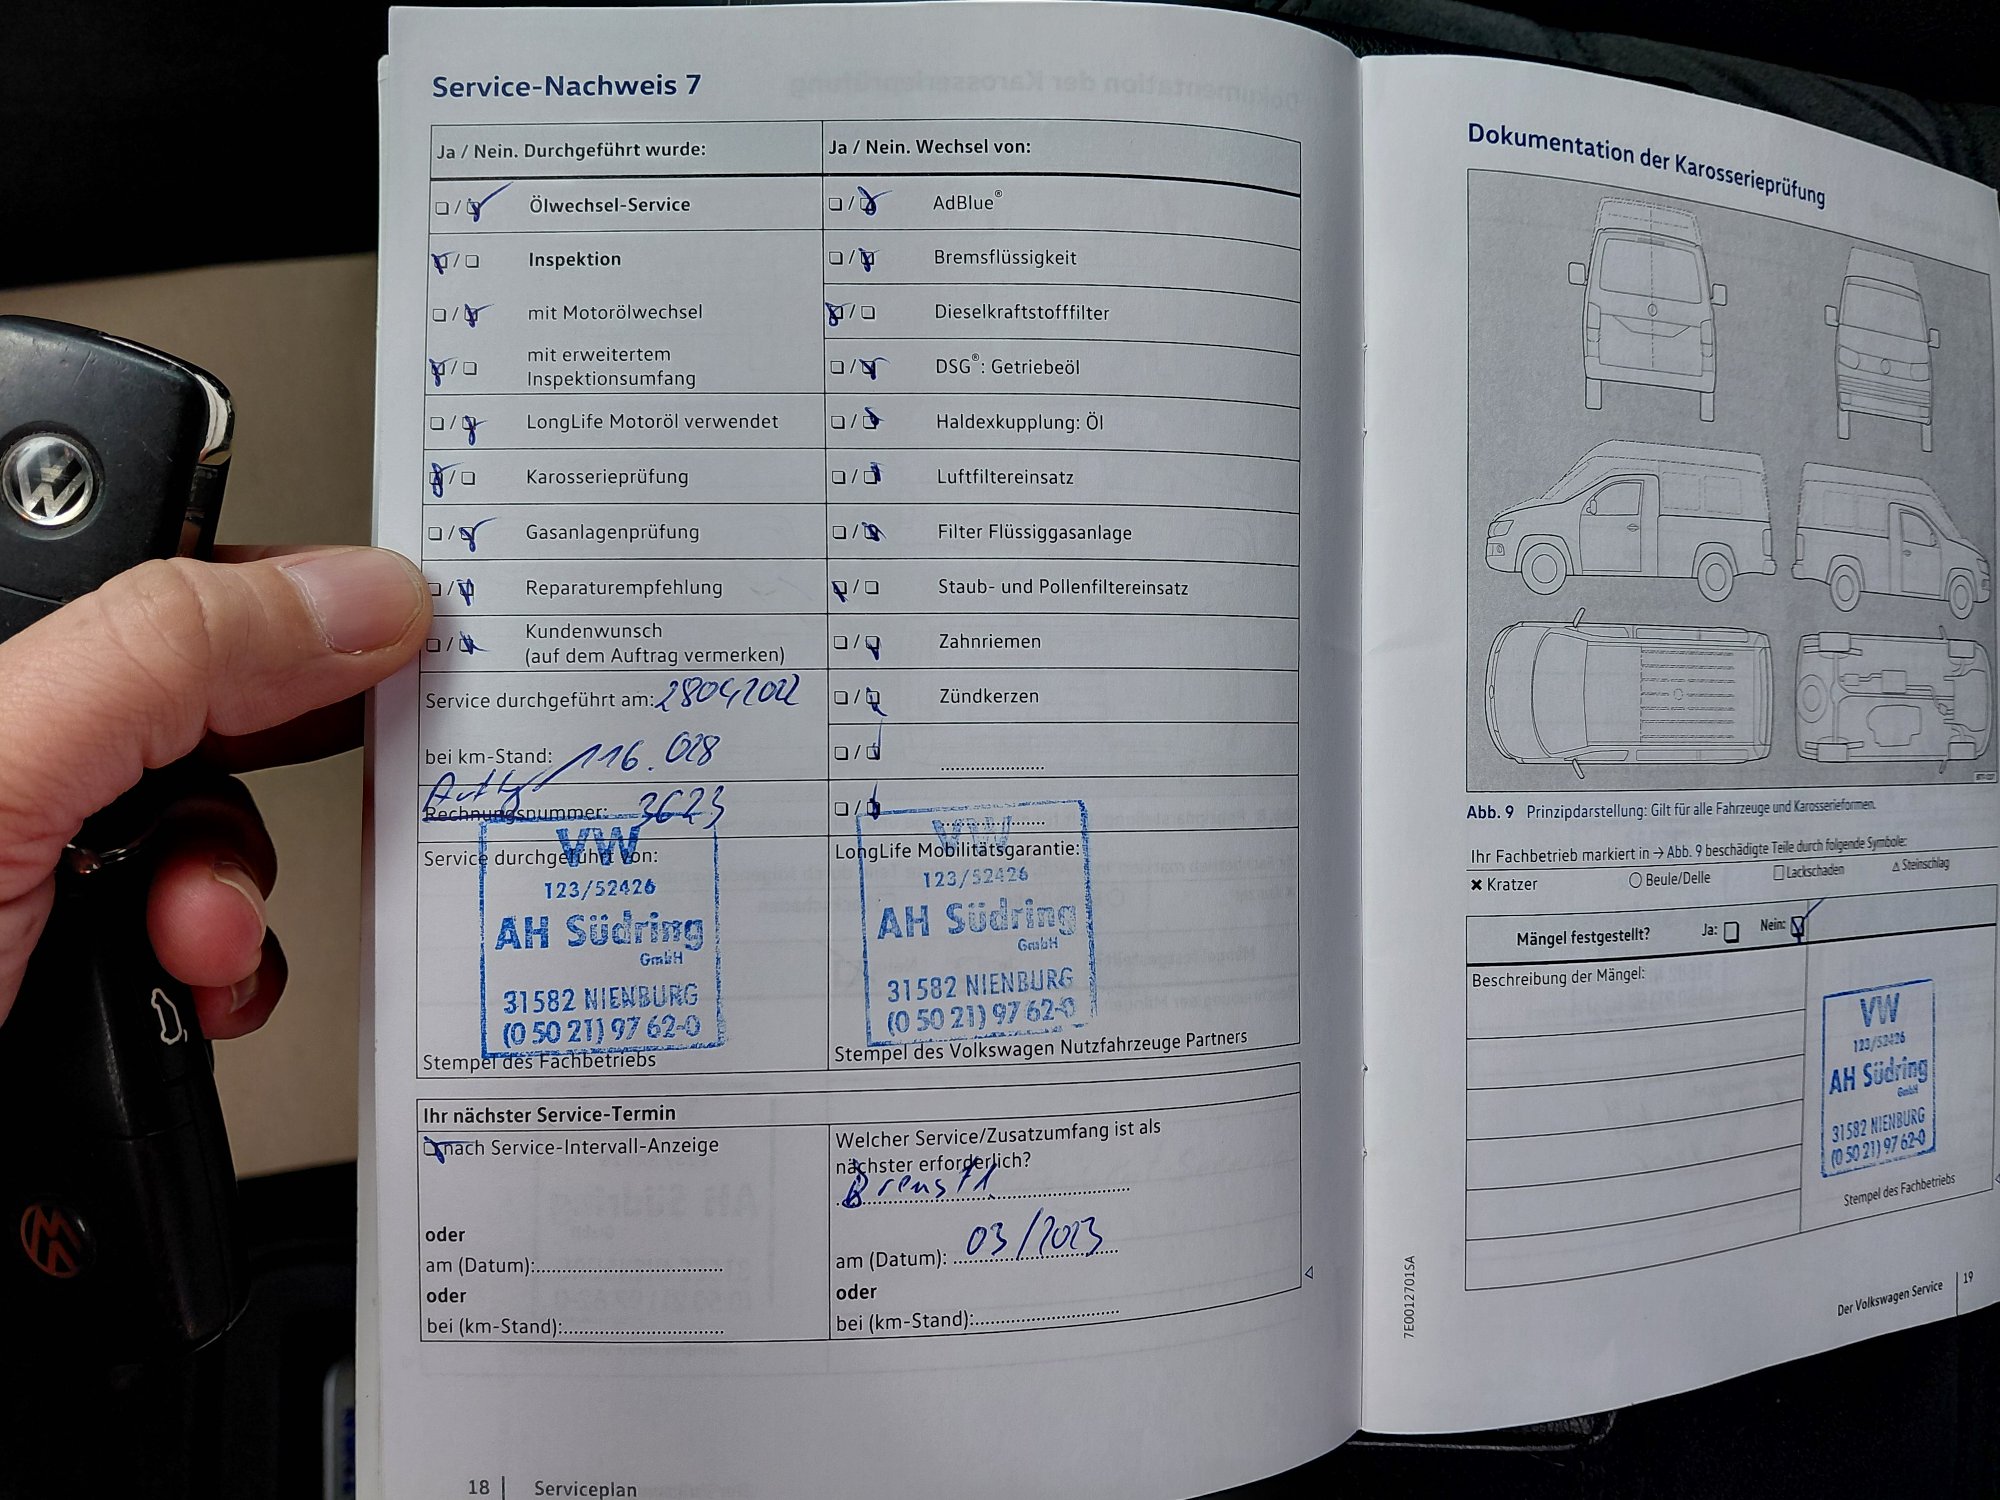 Service-Nachweis 7
Ja / Nein. Durchgeführt wurde:
Ja / Nein. Wechsel von:
Ölwechsel-Service
AdBlue®
Inspektion
Bremsflüssigkeit
mit Motorölwechsel
Dieselkraftstofffilter
mit erweitertem
Inspektionsumfang
DSG®: Getriebeöl
LongLife Motoröl verwendet
Haldexkupplung: Öl
Karosserieprüfung
Luftfiltereinsatz
Gasanlagenprüfung
Filter Flüssiggasanlage
Reparaturempfehlung
Staub- und Pollenfiltereinsatz
Kundenwunsch
(auf dem Auftrag vermerken)
Zahnriemen
Service durchgeführt am: 28042022
Zündkerzen
bei km-Stand: 116.028
Rechnungsnummer: 3623
Service durchgeführt von:
VW
123/52426
AH Südring
GmbH
31582 NIENBURG
(0 50 21) 97 62-0
Stempel des Fachbetriebs
LongLife Mobilitätsgarantie:
VW
123/52426
AH Südring
GmbH
31582 NIENBURG
(0 50 21) 97 62-0
Stempel des Volkswagen Nutzfahrzeuge Partners
Ihr nächster Service-Termin
nach Service-Intervall-Anzeige
oder
am (Datum):
oder
bei (km-Stand):
Welcher Service/Zusatzumfang ist als
nächster erforderlich?
Bremsfl.
am (Datum): 03/2023
oder
bei (km-Stand):
18 | Serviceplan
Dokumentation der Karosserieprüfung
Abb. 9 Prinzipdarstellung: Gilt für alle Fahrzeuge und Karosserieformen.
Ihr Fachbetrieb markiert in → Abb. 9 beschädigte Teile durch folgende Symbole:
✖ Kratzer ○ Beule/Delle □ Lackschaden △ Steinschlag
Mängel festgestellt? Ja: Nein:
Beschreibung der Mängel:
VW
123/52426
AH Südring
GmbH
31582 NIENBURG
(0 50 21) 97 62-0
Stempel des Fachbetriebs
7E0012701SA
Der Volkswagen Service | 19